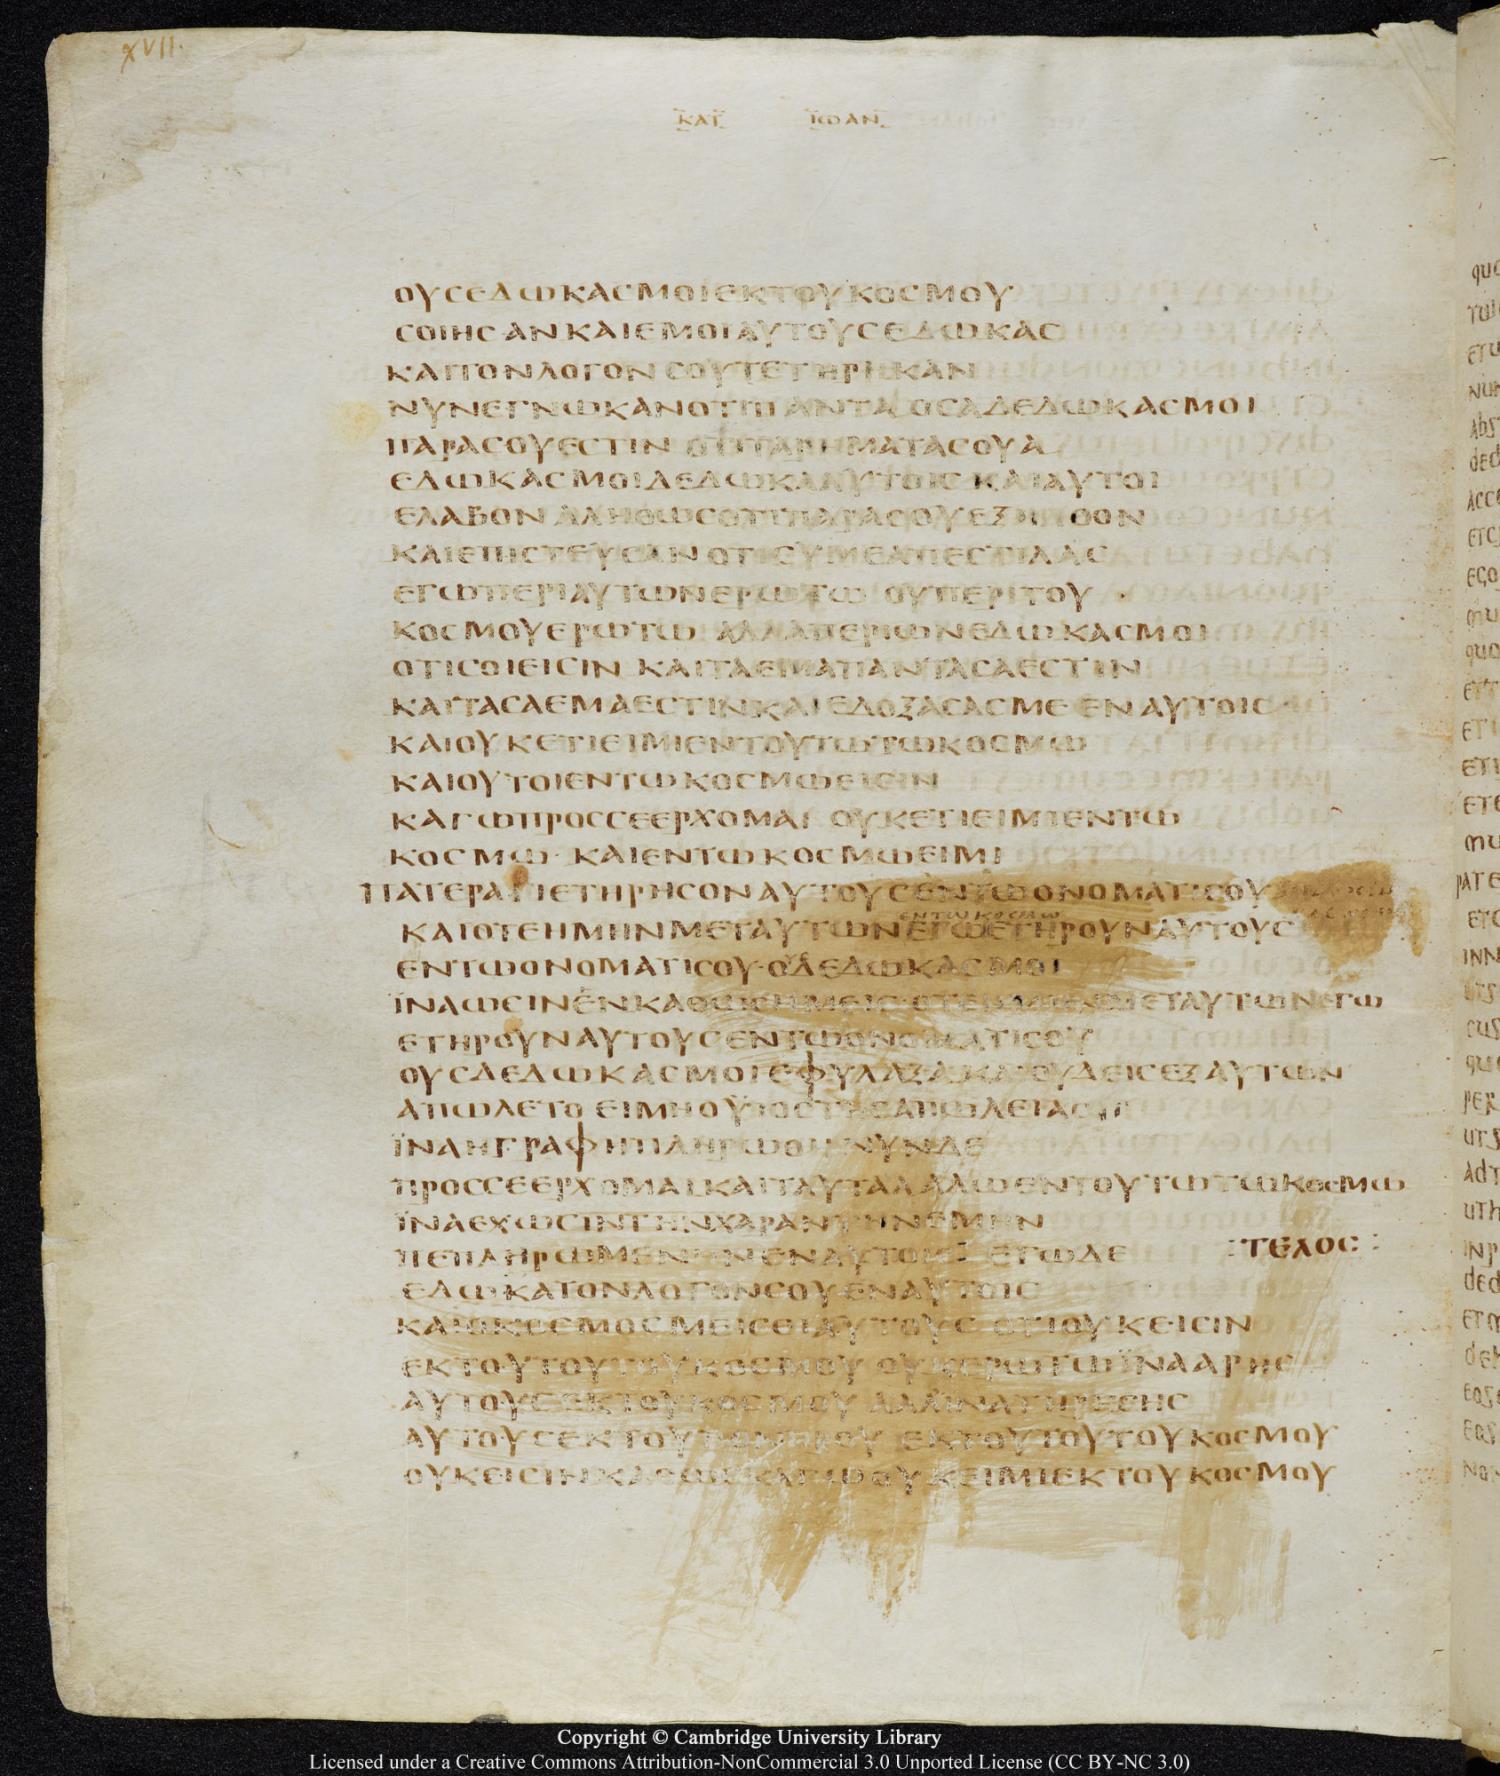 XVII.
ΚΑΤ ΙΩΑΝ
ΟΥCΕΔΩΚΑCΜΟΙΕΚΤΟΥΚΟCΜΟΥ
CΟΙΗCΑΝΚΑΙΕΜΟΙΑΥΤΟΥCΕΔΩΚΑC
ΚΑΙΤΟΝΛΟΓΟΝCΟΥΤΕΤΗΡΗΚΑΝ
ΝΥΝΕΓΝΩΚΑΝΟΤΙΠΑΝΤΑ ΟCΑΔΕΔΩΚΑCΜΟΙ
ΠΑΡΑCΟΥΕCΤΙΝ ΟΤΙΤΑΡΗΜΑΤΑCΟΥΑ
ΕΔΩΚΑCΜΟΙΔΕΔΩΚΑΑΥΤΟΙC ΚΑΙΑΥΤΟΙ
ΕΛΑΒΟΝ ΑΛΗΘΩCΟΤΙΠΑΡΑCΟΥΕΞΗΛΘΟΝ
ΚΑΙΕΠΙCΤΕΥCΑΝ ΟΤΙCΥΜΕΑΠΕCΤΙΛΑC
ΕΓΩΠΕΡΙΑΥΤΩΝΕΡΩΤΩ ΟΥΠΕΡΙΤΟΥ
ΚΟCΜΟΥΕΡΩΤΩ ΑΛΛΑΠΕΡΙΩΝΕΔΩΚΑCΜΟΙ
ΟΤΙCΟΙΕΙCΙΝ ΚΑΙΤΑΕΜΑΠΑΝΤΑCΑΕCΤΙΝ
ΚΑΙΤΑCΑΕΜΑΕCΤΙΝΚΑΙΕΔΟΞΑCΑCΜΕ ΕΝΑΥΤΟΙC
ΚΑΙΟΥΚΕΤΙΕΙΜΙΕΝΤΟΥΤΩΤΩΚΟCΜΩ
ΚΑΙΟΥΤΟΙΕΝΤΩΚΟCΜΩΕΙCΙΝ
ΚΑΓΩΠΡΟCCΕΕΡΧΟΜΑΙ ΟΥΚΕΤΙΕΙΜΙΕΝΤΩ
ΚΟCΜΩ· ΚΑΙΕΝΤΩΚΟCΜΩΕΙΜΙ
ΠΑΤΕΡΑΓΙΕΤΗΡΗCΟΝΑΥΤΟΥCΕΝΤΩΟΝΟΜΑΤΙCΟΥ
ΕΝΤΩΚΟCΜΩ
ΚΑΙΟΤΕΗΜΗΝΜΕΤΑΥΤΩΝΕΓΩΕΤΗΡΟΥΝΑΥΤΟΥC
ΕΝΤΩΟΝΟΜΑΤΙCΟΥ·ΟΔΕΔΩΚΑCΜΟΙ
ΪΝΑΩCΙΝΕΝΚΑΘΩCΗΜΕΙC·ΟΤΕΗΜΗΝΜΕΤΑΥΤΩΝΕΓΩ
ΕΤΗΡΟΥΝΑΥΤΟΥCΕΝΤΩΟΝΟΜΑΤΙCΟΥ
ΟΥCΔΕΔΩΚΑCΜΟΙΕΦΥΛΑΞΑΚΑΙΟΥΔΕΙCΕΞΑΥΤΩΝ
ΑΠΩΛΕΤΟ ΕΙΜΗΟΥΪΟCΤΗCΑΠΩΛΕΙΑC
ΪΝΑΗΓΡΑΦΗΠΛΗΡΩΘΗ ΝΥΝΔΕ
ΠΡΟCCΕΕΡΧΟΜΑΙΚΑΙΤΑΥΤΑΛΑΛΩΕΝΤΟΥΤΩΤΩΚΟCΜΩ
ΪΝΑΕΧΩCΙΝΤΗΝΧΑΡΑΝΤΗΝΕΜΗΝ
ΠΕΠΛΗΡΩΜΕΝΗΝΕΝΑΥΤΟΙC ΕΓΩΔΕ :ΤΕΛΟC:
ΕΔΩΚΑΤΟΝΛΟΓΟΝCΟΥΕΝΑΥΤΟΙC
ΚΑΙΟΚΟCΜΟCΜΕΙCΕΙΑΥΤΟΥC ΟΤΙΟΥΚΕΙCΙΝ
ΕΚΤΟΥΤΟΥΤΟΥΚΟCΜΟΥ ΟΥΚΕΡΩΤΩΪΝΑΑΡΗC
ΑΥΤΟΥCΕΚΤΟΥΚΟCΜΟΥ ΑΛΛΙΝΑΤΗΡΗCΗC
ΑΥΤΟΥCΕΚΤΟΥΠΟΝΗΡΟΥ ΕΚΤΟΥΤΟΥΤΟΥΚΟCΜΟΥ
ΟΥΚΕΙCΙΝΚΑΘΩCΚΑΓΩΟΥΚΕΙΜΙΕΚΤΟΥΚΟCΜΟΥ
Copyright © Cambridge University Library
Licensed under a Creative Commons Attribution-NonCommercial 3.0 Unported License (CC BY-NC 3.0)